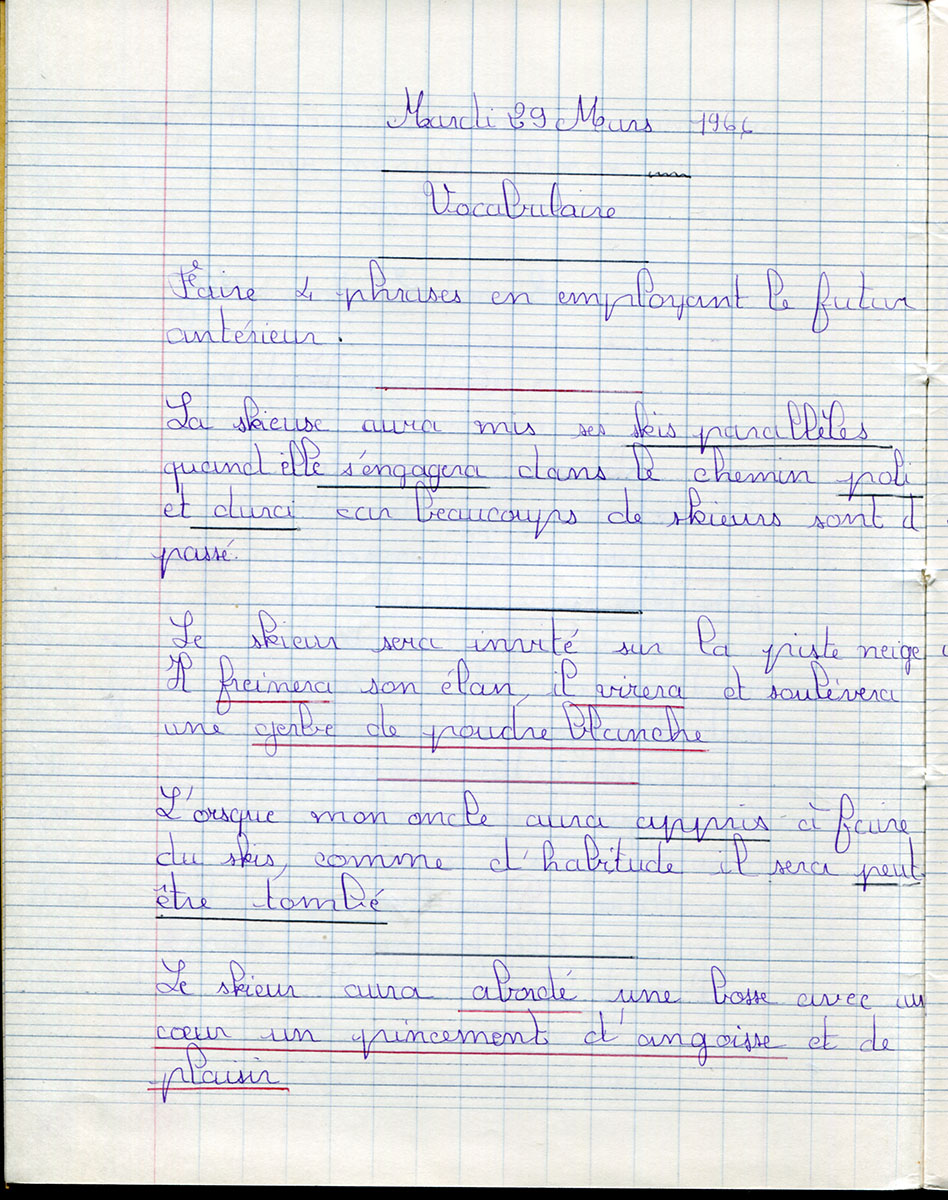 Mardi 29 Mars 1966
Vocabulaire
Faire 4 phrases en employant le futur
antérieur.
La skieuse aura mis ses skis parallèles
quand elle s'engagera dans le chemin poli
et durci car beaucoups de skieurs sont
passé.
Le skieur sera invité sur la piste neige
Il freinera son élan, il virera et soulévera
une gerbe de poudre blanche
L'orsque mon oncle aura appris à faire
du skis, comme d'habitude il sera peut
être tombé
Le skieur aura abordé une bosse avec au
cœur un pincement d'angoisse et de
plaisir